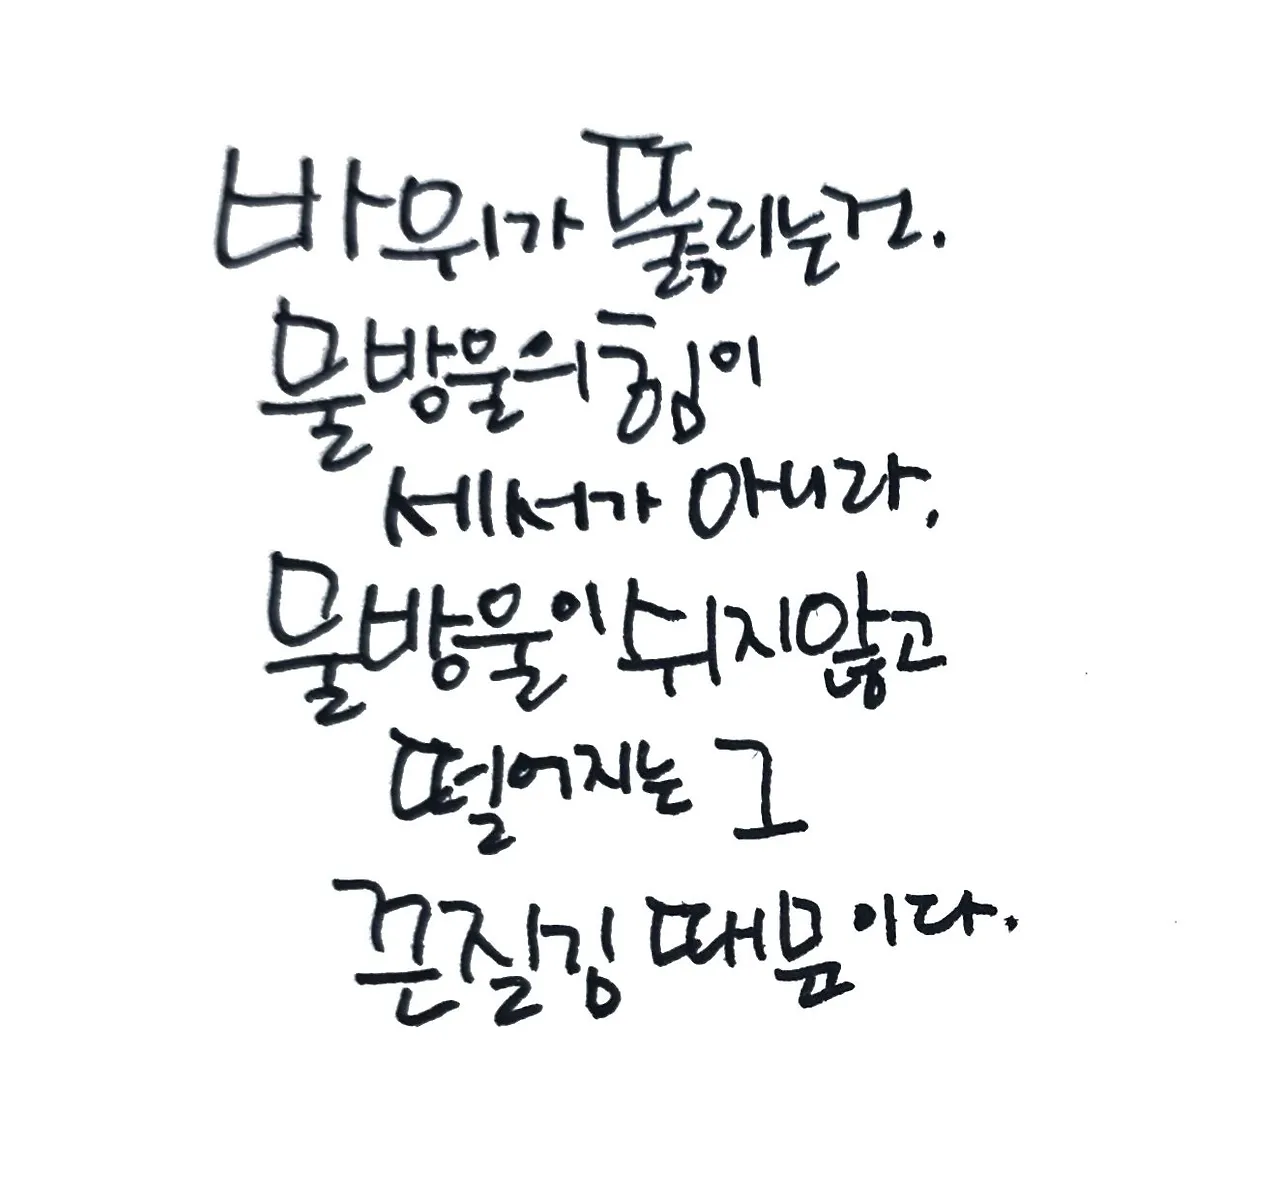 바위가 뚫리는건.
물방울의 힘이
세서가 아니라,
물방울이 쉬지않고
떨어지는 그
끈질김 때문이다.